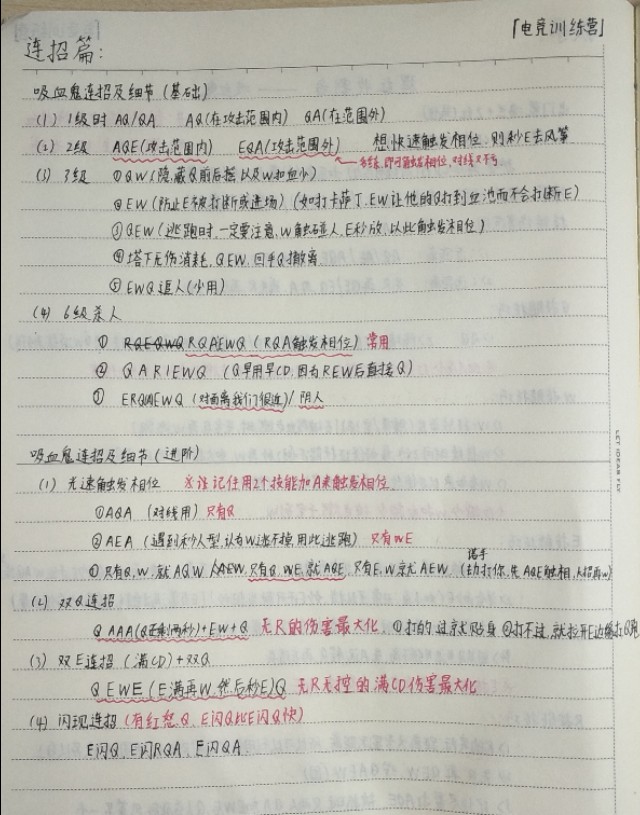 「电竞训练营」
连招篇:
吸血鬼连招及细节(基础)
(1) 1级时 AQ/QA AQ(在攻击范围内) QA(在范围外)
(2) 2级 AQE(攻击范围内) EQA(攻击范围外) 想快速触发相位 则秒E去风筝
即可触发相位,对线
(3) 3级 ①QW(隐蔽Q前后摇以及W扣血少)
②EW(防止E被打断或进场)(如打卡萨丁,EW让他的Q打到血池而不会打断E)
③QEW(逃跑时,一定要注意,W触碰人,E秒放,以此触发相位)
④塔下无伤消耗,QEW,回手Q撤离
⑤EWQ逗人(少用)
(4) 6级杀人
① RQEQWQ RQAEWQ(RQA触发相位)常用
② QARIEWQ (Q早用早CD,因为REW后直接Q)
③ ERQAEWQ(对面离我们很近)/阴人
吸血鬼连招及细节(进阶)
(1) 光速触发相位 ※谨记任用2个技能加A来触发相位
①AQA(对线用)只有Q
②AEA(遇到秒人型,认为W逃不掉,用此逃跑)只有WE
③只有Q,W,就AQW AAEW,只有Q,WE,就AQE,只有E,W就AEW
诺手
(2) 双Q连招
Q AAA(Q还剩1两秒)+EW+Q 无R的伤害最大化,①打的过就贴身 ②打不过,就拉开E边
(3) 双E连招(满CD)+双Q
Q EWE(E满再W,然后秒E)Q 无R无控的满CD伤害最大化
(4) 闪现连招(有红怒Q,E闪Q比E闪Q快)
E闪Q、E闪RQA、E闪QA
LET IDEAS FLY